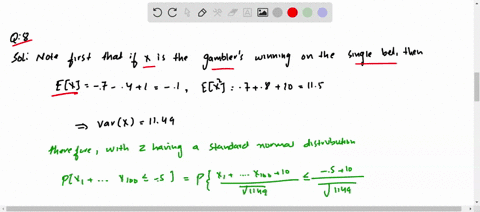 Q:8
Sol: Note first that if x is the gambler's winning on the single bet, then
E[x] = -.7 - .4 + 1 = -.1, E[x²] = .7 + .8 + 10 = 11.5
⇒ var(x) = 11.49
therefore, with z having a standard normal distribution
P[x₁ + ... x₁₀₀ ≤ -.5] = P{ x₁ + .... x₁₀₀ + 10 / √1149 ≤ -.5 + 10 / √1149